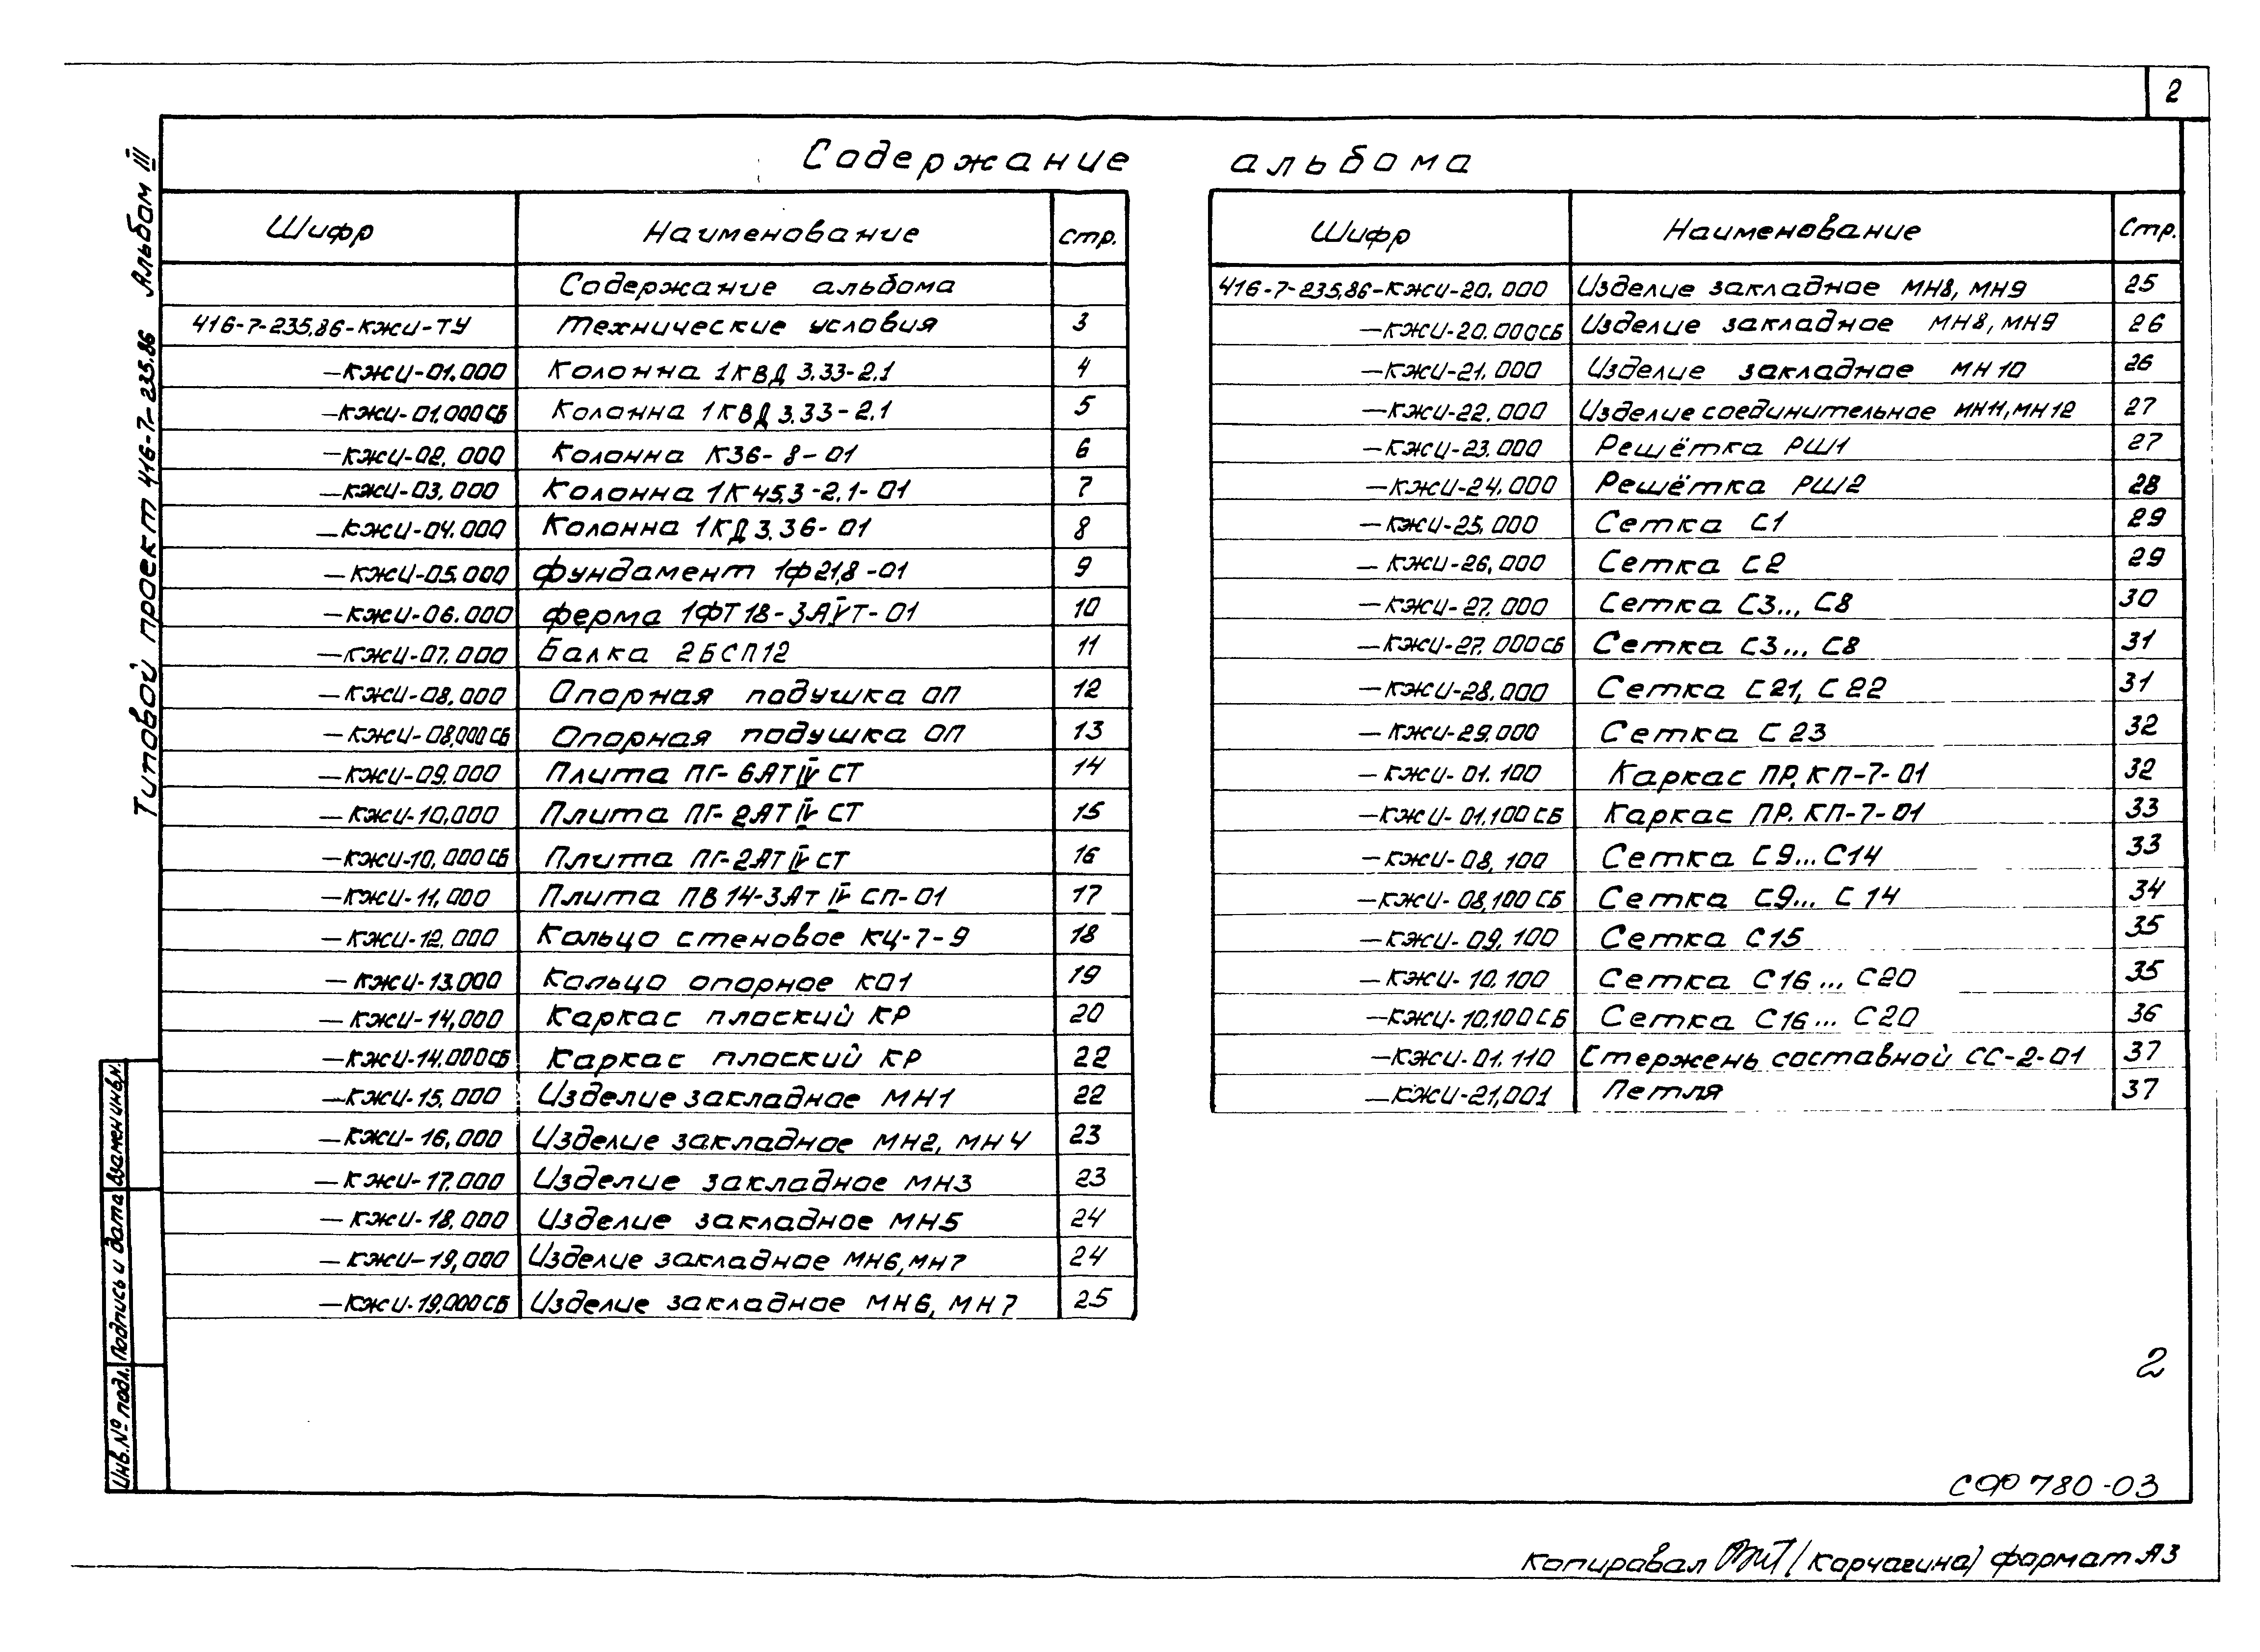 2
Содержание альбома
Типовой проект 416-7-235.86 Альбом III
Шифр Наименование стр.
Содержание альбома
416-7-235.86-КЖИ-ТУ Технические условия 3
—КЖИ-01.000 Колонна 1КВД 3.33-2.1 4
—КЖИ-01.000СБ Колонна 1КВД 3.33-2.1 5
—КЖИ-02.000 Колонна К36-8-01 6
—КЖИ-03.000 Колонна 1К45.3-2.1-01 7
—КЖИ-04.000 Колонна 1КД 3.36-01 8
—КЖИ-05.000 Фундамент 1Ф21.8-01 9
—КЖИ-06.000 Ферма 1ФТ18-3АVТ-01 10
—КЖИ-07.000 Балка 2БСП12 11
—КЖИ-08.000 Опорная подушка ОП 12
—КЖИ-08.000СБ Опорная подушка ОП 13
—КЖИ-09.000 Плита ПГ-6АТIVСТ 14
—КЖИ-10.000 Плита ПГ-2АТIVСТ 15
—КЖИ-10.000СБ Плита ПГ-2АТIVСТ 16
—КЖИ-11.000 Плита ПВ14-3АтIVСП-01 17
—КЖИ-12.000 Кольцо стеновое КЦ-7-9 18
—КЖИ-13.000 Кольцо опорное КО1 19
—КЖИ-14.000 Каркас плоский КР 20
—КЖИ-14.000СБ Каркас плоский КР 22
—КЖИ-15.000 Изделие закладное МН1 22
—КЖИ-16.000 Изделие закладное МН2, МН4 23
—КЖИ-17.000 Изделие закладное МН3 23
—КЖИ-18.000 Изделие закладное МН5 24
—КЖИ-19.000 Изделие закладное МН6, МН7 24
—КЖИ-19.000СБ Изделие закладное МН6, МН7 25
Шифр Наименование Стр.
416-7-235.86-КЖИ-20.000 Изделие закладное МН8, МН9 25
—КЖИ-20.000СБ Изделие закладное МН8, МН9 26
—КЖИ-21.000 Изделие закладное МН10 26
—КЖИ-22.000 Изделие соединительное МН11, МН12 27
—КЖИ-23.000 Решётка РШ1 27
—КЖИ-24.000 Решётка РШ2 28
—КЖИ-25.000 Сетка С1 29
—КЖИ-26.000 Сетка С2 29
—КЖИ-27.000 Сетка С3... С8 30
—КЖИ-27.000СБ Сетка С3... С8 31
—КЖИ-28.000 Сетка С21, С22 31
—КЖИ-29.000 Сетка С23 32
—КЖИ-01.100 Каркас ПР. КП-7-01 32
—КЖИ-01.100СБ Каркас ПР. КП-7-01 33
—КЖИ-08.100 Сетка С9... С14 33
—КЖИ-08.100СБ Сетка С9... С14 34
—КЖИ-09.100 Сетка С15 35
—КЖИ-10.100 Сетка С16... С20 35
—КЖИ-10.100СБ Сетка С16... С20 36
—КЖИ-01.110 Стержень составной СС-2-01 37
—КЖИ-21.001 Петля 37
Взамен инв.№
Подпись и дата
Инв.№ подл.
2
СФ 780-03
Копировал (Корчагина) формат А3